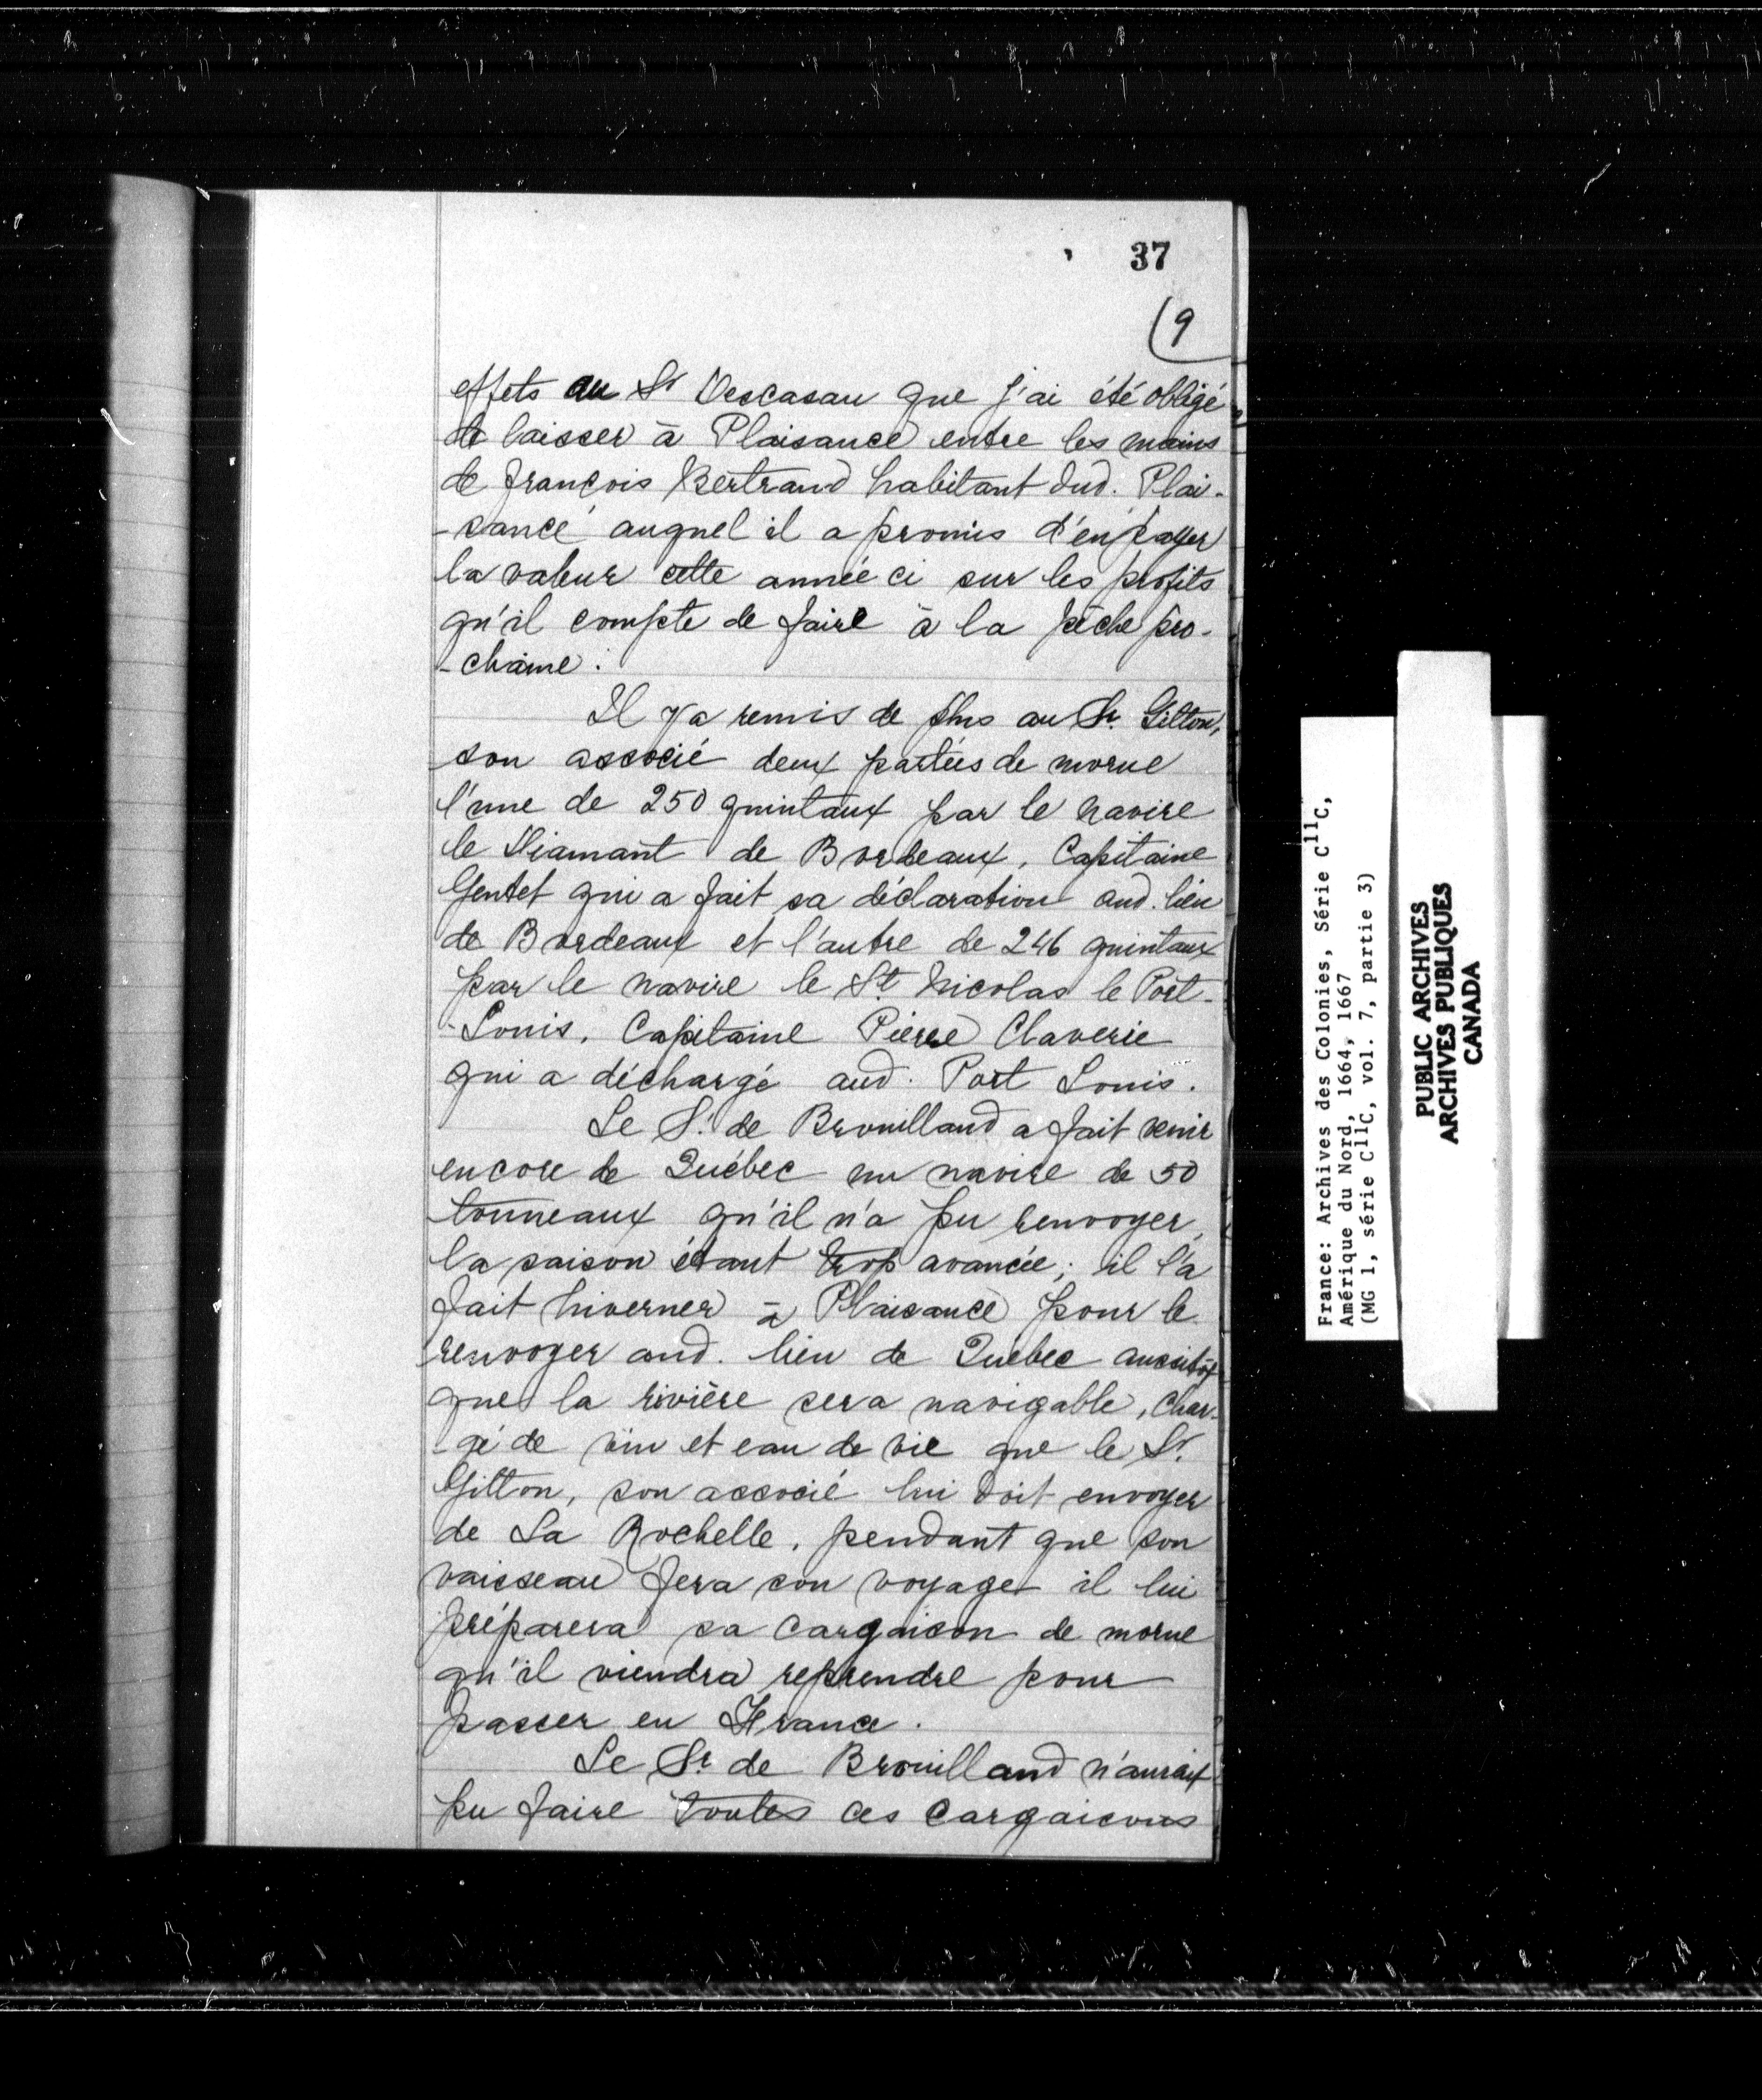 37
(9
effets au Sr Descasau que j'ai été obligé
de laisser à Plaisance entre les mains
de françois Bertrand habitant dud. Plai-
-sance auquel il a promis d'en payer
la valeur cette année ci sur les profits
qu'il compte de faire à la pêche pro-
-chaine.
Il y a remis de plus au Sr. Gitton,
son associé deux parties de morue
l'une de 250 quintaux par le navire
le Diamant de Bordeaux, Capitaine
Gentet qui a fait sa déclaration aud. lieu
de Bordeaux et l'autre de 246 quintaux
par le navire le St Nicolas le Port-
-Louis, Capitaine Pierre Claverie
qui a déchargé aud. Port Louis.
Le S. de Brouilland a fait venir
encore de Québec un navire de 50
tonneaux qu'il n'a pu renvoyer,
la saison étant trop avancée; il l'a
fait hiverner à Plaisance pour le
renvoyer aud. lieu de Québec aussitôt
que la rivière sera navigable, char-
-gé de vin et eau de vie que le Sr.
Gitton, son associé lui doit envoyer
de La Rochelle, pendant que son
vaisseau fera son voyage il lui
préparera sa cargaison de morue
qu'il viendra reprendre pour
passer en France.
Le Sr. de Brouilland n'aurait
pu faire toutes ces cargaisons
France: Archives des Colonies, Série C11C,
Amérique du Nord, 1664, 1667
(MG 1, série C11C, vol. 7, partie 3)
PUBLIC ARCHIVES
ARCHIVES PUBLIQUES
CANADA